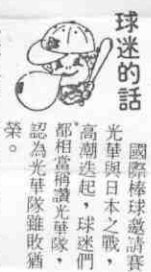 球迷的話
國際棒球邀請賽
光華與日本之戰，
高潮迭起，球迷們
都相當稱讚光華隊，
認為光華隊雖敗猶
榮。